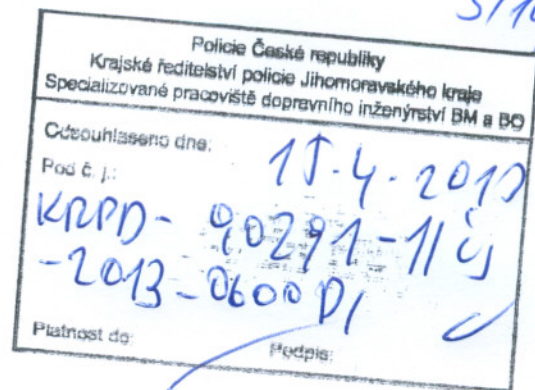 5/1
Policie České republiky
Krajské ředitelství policie Jihomoravského kraje
Specializované pracoviště dopravního inženýrství BM a BO
Odsouhlaseno dne: 15.4.2013
Pod č. j.:
KRPB- 90291-1/ČJ
-2013-0600DI
Platnost do: Podpis: